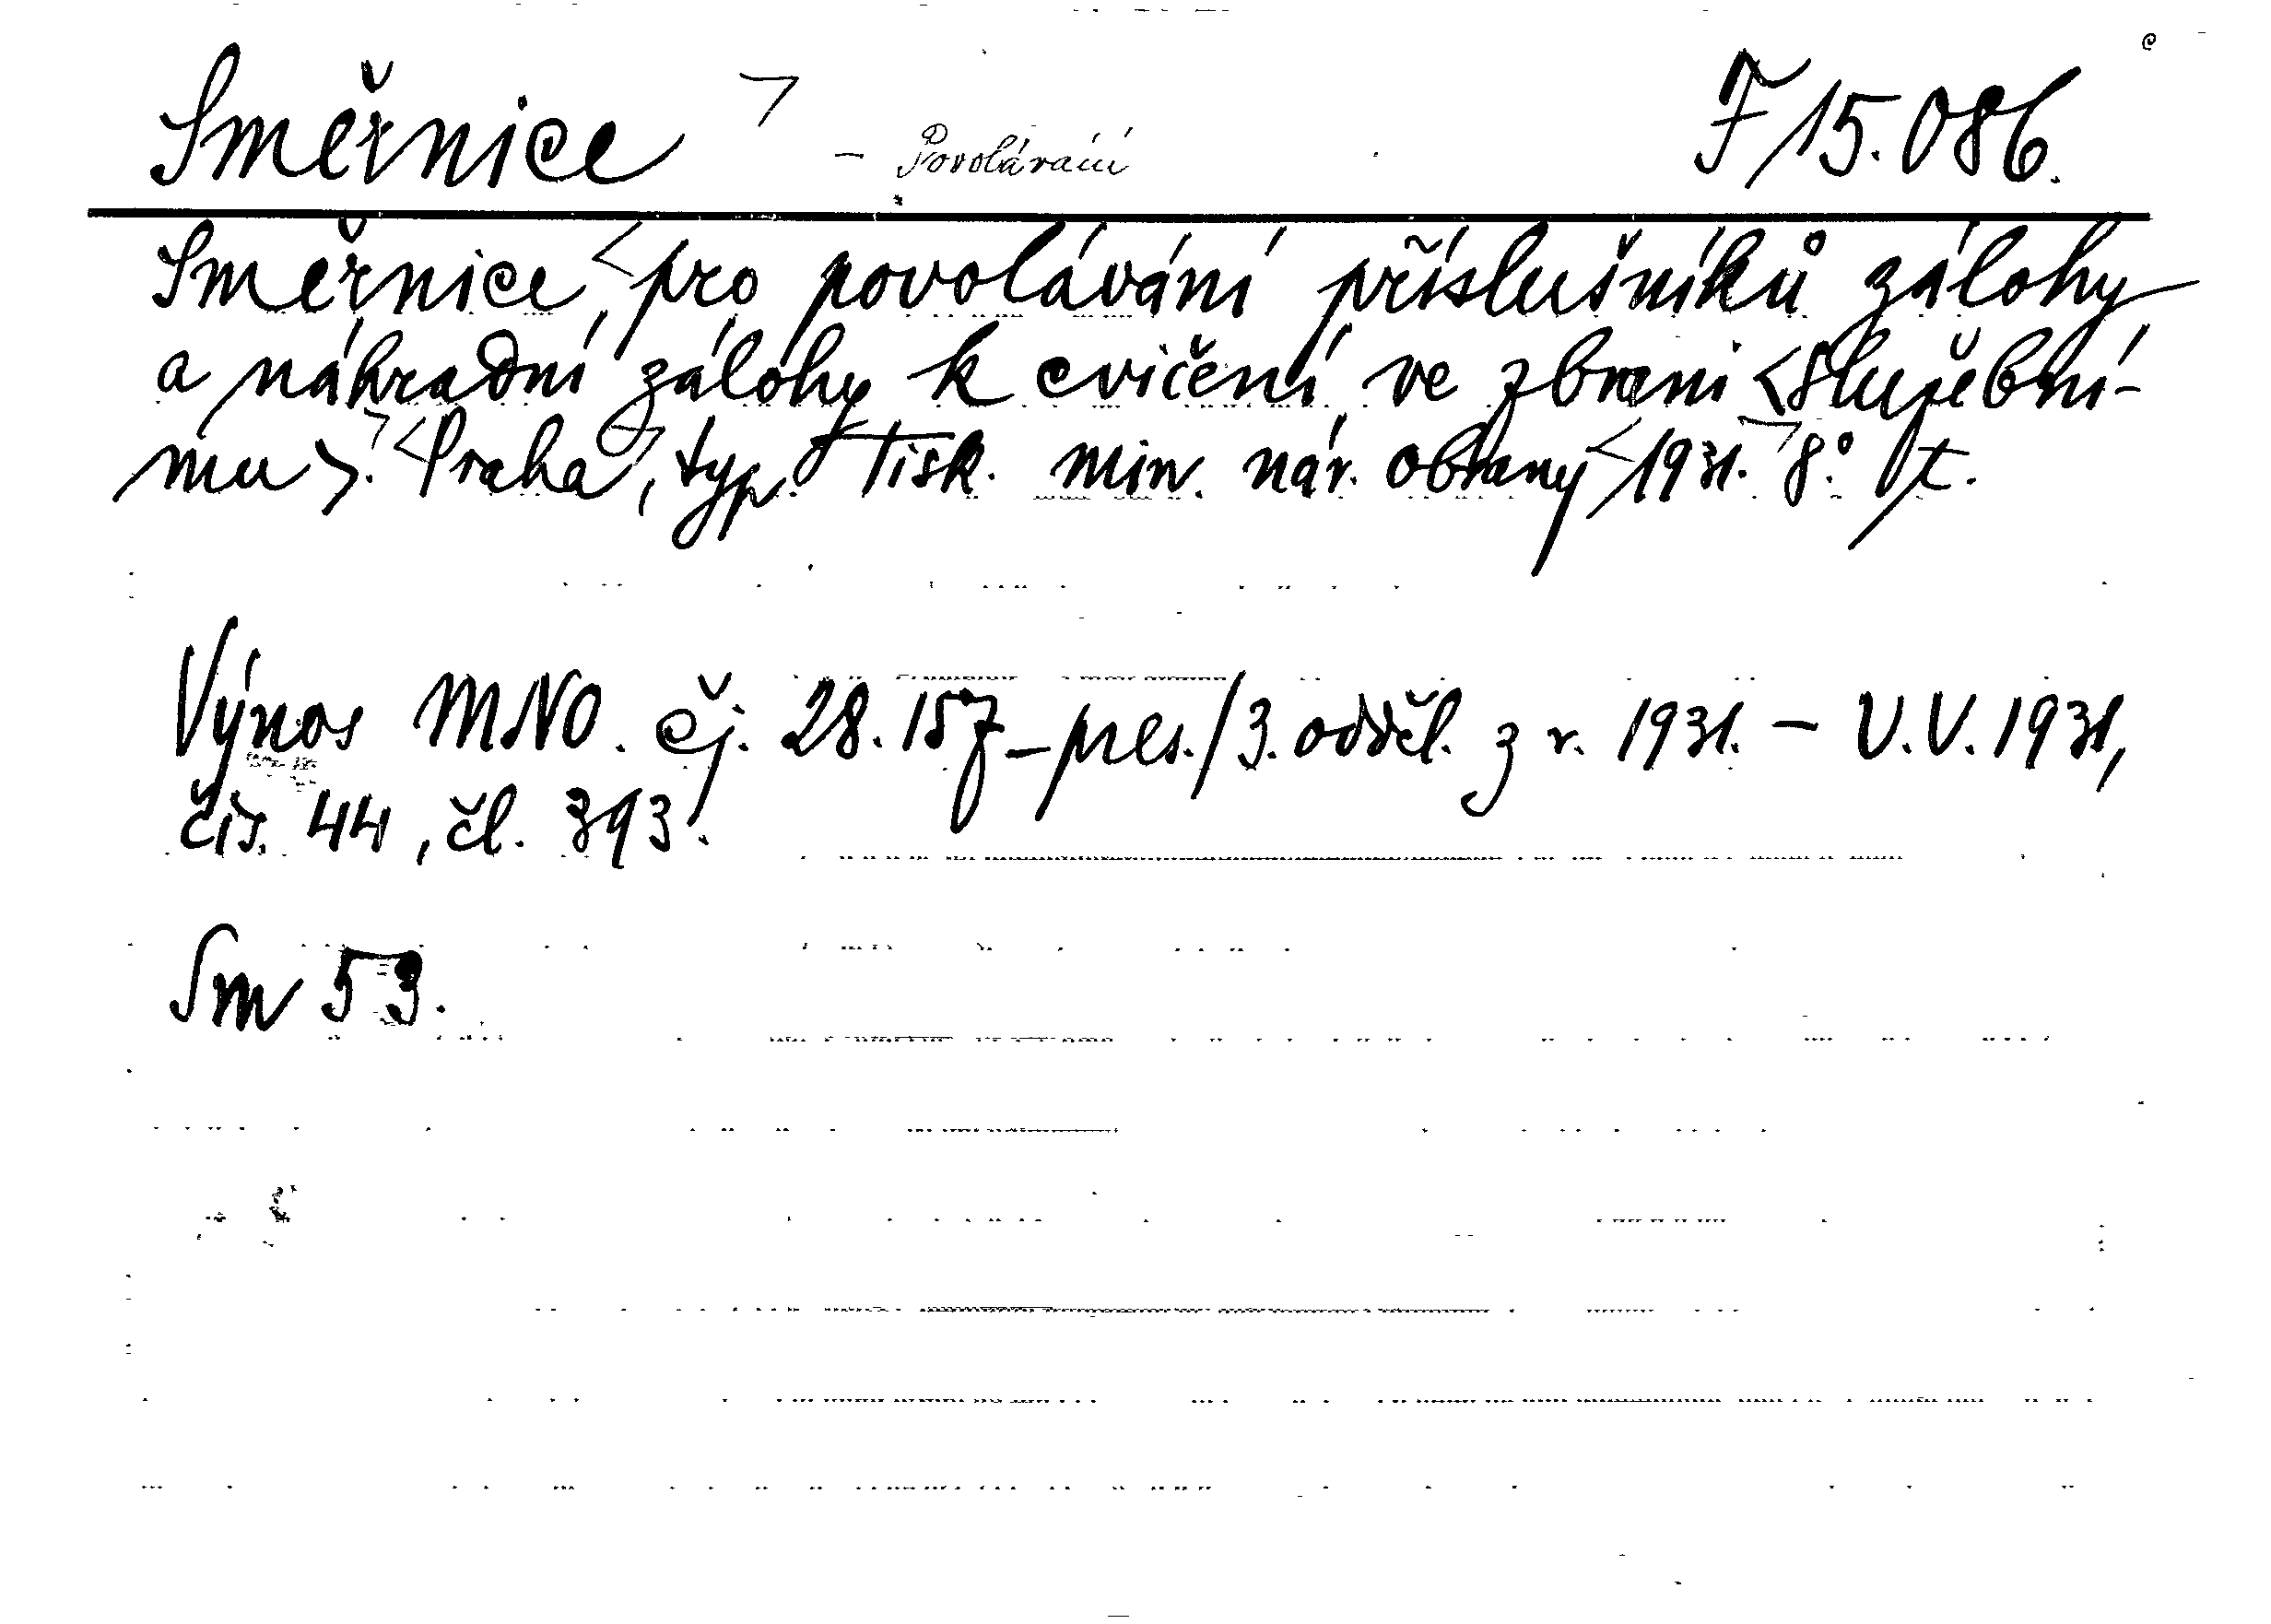 Směrnice – Povolávání F 15.086.
Směrnice pro povolávání příslušníků zálohy
a náhradní zálohy k cvičení ve zbrani <služební-
mu>. Praha, typ. Tisk. min. nár. obrany 1931. 8° t.
Výnos MNO. čj. 28.157-pres./3.odděl. z r. 1931. – V.V. 1931,
čís. 44, čl. 393.
Sm 53.